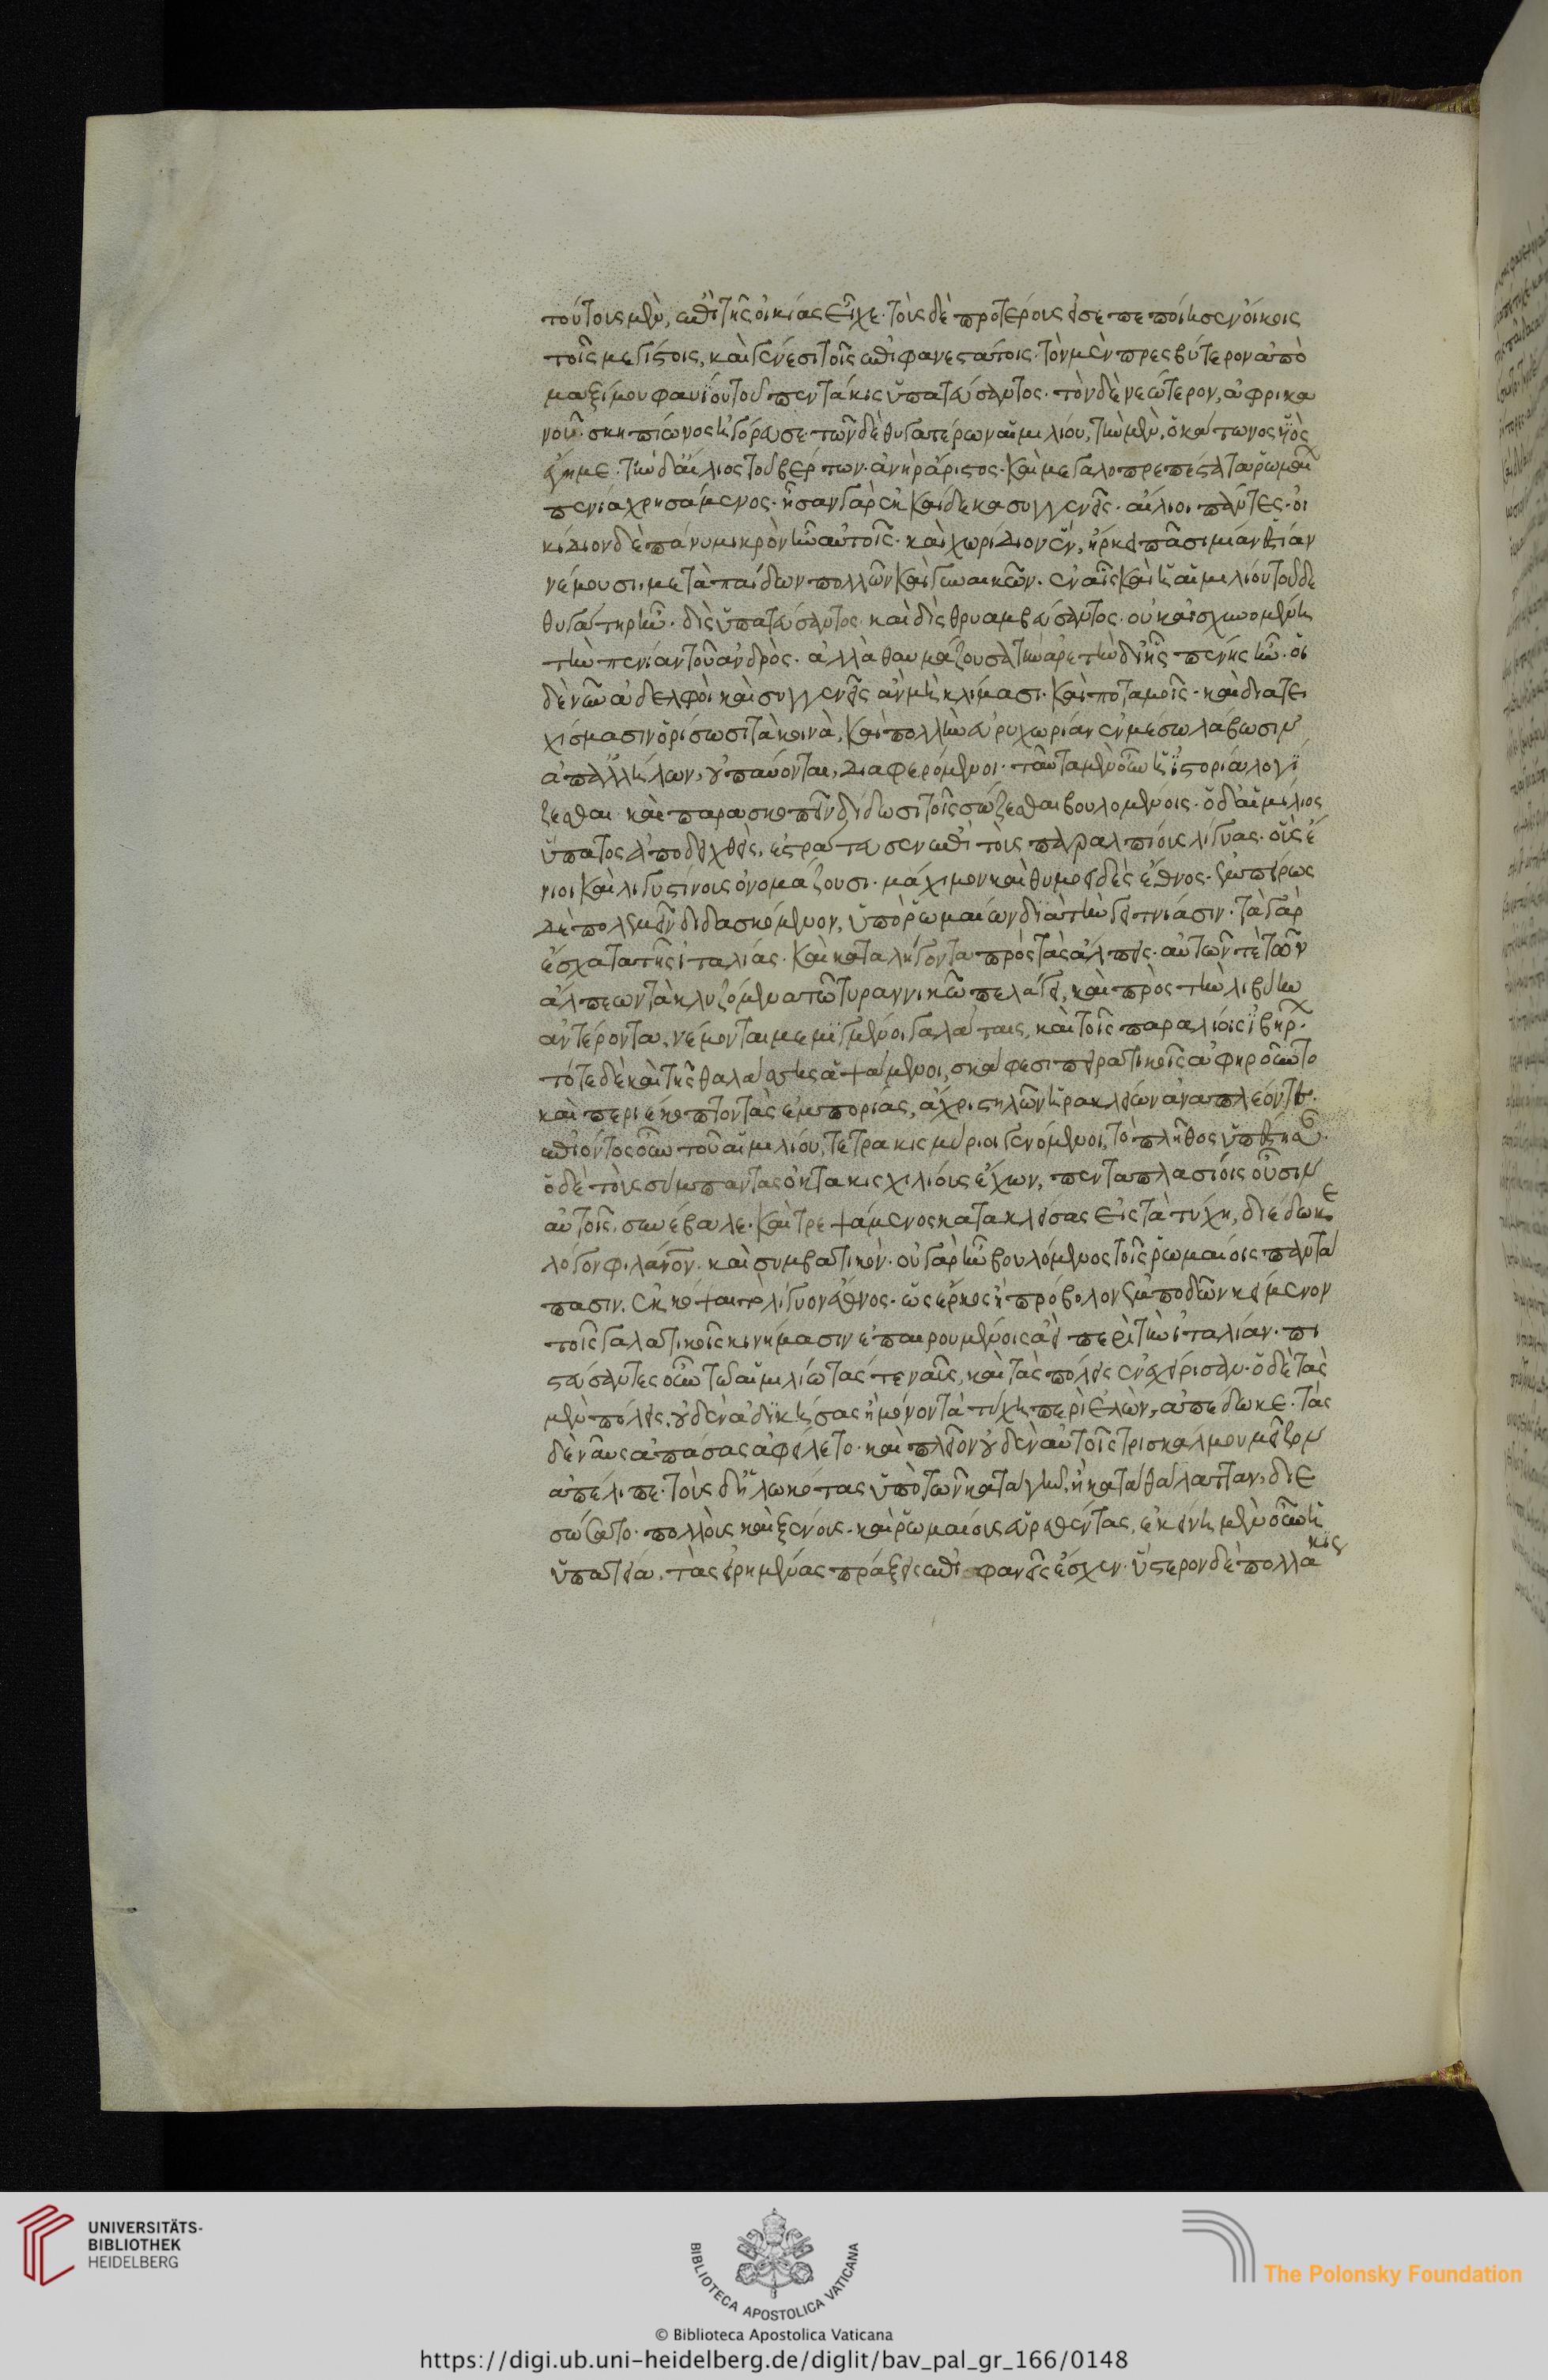 τούτους μὲν, ἐπὶ τῆς οἰκίας εἶχε· τοὺς δὲ προτέρους εἰσεπεποίησεν οἴκοις
τοῖς μεγίστοις, καὶ γένεσι τοῖς ἐπιφανεστάτοις· τὸν μὲν πρεσβύτερον ἀπὸ
μαξίμου φαυΐου τοῦ πεντάκις ὑπατεύσαντος· τὸν δὲ νεώτερον, ἀφρικα
νοῦ· σκηπίωνος ἠγόρασε· τῶν δὲ θυγατέρων αἰμιλίου, τὴν μὲν, ὁ κάτωνος ὑὸς
ἔγημε· τὴν δ' αἴλιος τουβέρτων· ἀνὴρ ἄριστος· καὶ μεγαλοπρεπέστατα ῥωμαίων
πενία χρησάμενος· ἦσαν γὰρ ἑκκαίδεκα συγγενεῖς· αἴλιοι πάντες· οἰ
κίδιον δὲ πάνυ μικρὸν ἦν αὐτοῖς· καὶ χωρίδιον ἓν, ἤρκει πᾶσι μίαν ἑστίαν
νέμουσι, μετὰ παίδων πολλῶν καὶ γυναικῶν· ἐν αἷς καὶ ἡ αἰμιλίου τοῦδε
θυγάτηρ ἦν· δὶς ὑπατεύσαντος· καὶ δὶς θρυαμβεύσαντος· οὐκ αἰσχυνομένη
τὴν πενίαν τοῦ ἀνδρὸς· ἀλλὰ θαυμάζουσα τὴν ἀρετὴν δι' ἧς πένης ἦν· οἱ
δὲ νῦν ἀδελφοὶ καὶ συγγενεῖς ἂν μὴ κλίμασι· καὶ ποταμοῖς· καὶ διατει
χίσμασιν ὁρίσωσι τὰ κοινὰ, καὶ πολλὴν εὐρυχωρίαν ἐν μέσω λάβωσιν
ἀπ' ἀλλήλων, οὐ παύονται, διαφερόμενοι· ταῦτα μὲν οὖν ἡ ἱστορία λογί
ζεσθαι καὶ παρασκοπεῖν δίδωσι τοῖς σώζεσθαι βουλομένοις· ὁ δ' αἰμίλιος
ὕπατος ἀποδειχθεὶς, ἐστράτευσεν ἐπὶ τοὺς παραλπίους λίγυας· οὓς ἔ
νιοι καὶ λιγυστίνους ὀνομάζουσι· μάχιμον καὶ θυμοειδὲς ἔθνος· ἐμπείρως
δὲ πολεμεῖν διδασκόμενον, ὑπὸ ῥωμαίων διὰ τὴν γειτνίασιν· τὰ γὰρ
ἔσχατα τῆς ἰταλίας· καὶ καταλήγοντα πρὸς τὰς ἄλπεις· αὐτῶν τὲ τῶν
ἄλπεων τὰ κλυζόμενα τῶ τυραννικῶ πελάγει, καὶ πρὸς τὴν λιβύην
ἀνταίροντα, νέμονται μεμιγμένοι γαλάταις, καὶ τοῖς παραλίοις ἰβήρων·
τότε δὲ καὶ τῆς θαλάσσης ἁψάμενοι, σκάφεσι πειρατικοῖς ἀφηροῦντο
καὶ περιέκοπτον τὰς ἐμπορίας, ἄχρι στηλῶν ἡρακλείων ἀναπλέοντες·
ἐπιόντος οὖν τοῦ αἰμιλίου, τετρακισμύριοι γενόμενοι, τὸ πλῆθος ὑπέστησαν·
ὁ δὲ τοὺς σύμπαντας ὀκτακισχιλίους ἔχων, πενταπλασίοις οὖσιν
αὐτοῖς, συνέβαλε· καὶ τρεψάμενος κατακλείσας εἰς τὰ τείχη, διέδωκε
λόγον φιλάνον· καὶ συμβατικόν· οὐ γὰρ ἦν βουλόμενος τοῖς ῥωμαίοις παντά
πασιν, ἐκκόψαι τὸ λιγύων ἔθνος· ὡς ἕρκος ἢ πρόβολον ἐμποδὼν κείμενον
τοῖς γαλατικοῖς κινήμασιν ἐπαιρουμένοις ἀεὶ περὶ τὴν ἰταλίαν· πι
στεύσαντες οὖν τῶ αἰμιλίω τάς τε ναῦς, καὶ τὰς πόλεις ἐνεχείρισαν· ὁ δὲ τὰς
μὲν πόλεις, οὐδὲν ἀδικήσας ἢ μόνον τὰ τείχη περιελὼν, ἀπέδωκε· τὰς
δὲ ναῦς ἁπάσας ἀφείλετο· καὶ πλεῖον οὐδὲν αὐτοῖς τρισκάλμου μεῖζον
ἀπέλιπε· τοὺς δ' ἡλωκότας ὑπ' αὐτῶν κατὰ γῆν, ἢ κατὰ θάλατταν, διε
σώσατο· πολλοὺς καὶ ξένους· καὶ ῥωμαίους εὑρεθέντας, ἐκείνη μὲν οὖν ἡ
ὑπατεία, τὰς εἰρημένας πράξεις ἐπιφανεῖς ἔσχεν· ὕστερον δὲ πολλάκις
UNIVERSITÄTS-
BIBLIOTHEK
HEIDELBERG
BIBLIOTECA APOSTOLICA VATICANA
The Polonsky Foundation
© Biblioteca Apostolica Vaticana
https://digi.ub.uni-heidelberg.de/diglit/bav_pal_gr_166/0148